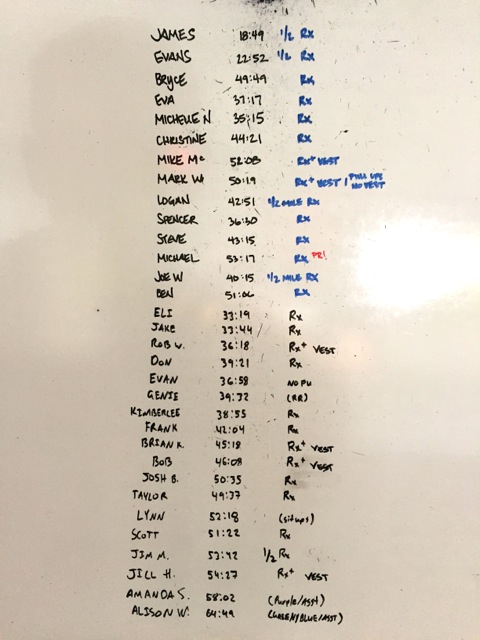 JAMES 18:49 1/2 Rx
EVANS 22:52 1/2 Rx
BRYCE 49:49 Rx
EVA 37:17 Rx
MICHELLE N 35:15 Rx
CHRISTINE 44:21 Rx
MIKE Mc 52:08 Rx+ VEST
MARK W 50:19 Rx+ VEST / PULL UPS NO VEST
LOGAN 42:51 1/2 MILE Rx
SPENCER 36:30 Rx
STEVE 43:15 Rx
MICHAEL 53:17 Rx PR!
JOE W 40:15 1/2 MILE Rx
BEN 51:06 Rx
ELI 33:19 Rx
JAKE 33:44 Rx
ROB W. 36:18 Rx+ VEST
DON 39:21 Rx
EVAN 36:58 NO PU
GENIE 39:32 (RR)
KIMBERLEE 38:55 Rx
FRANK 42:04 Rx
BRIAN K. 45:18 Rx+ VEST
BOB 46:08 Rx+ VEST
JOSH B. 50:35 Rx
TAYLOR 49:37 Rx
LYNN 52:18 (situps)
SCOTT 51:22 Rx
JIM M. 53:42 1/2 Rx
JILL H. 54:27 Rx+ VEST
AMANDA S. 58:02 (Purple/ASST)
ALISON W. 64:49 BLUE/ASST)